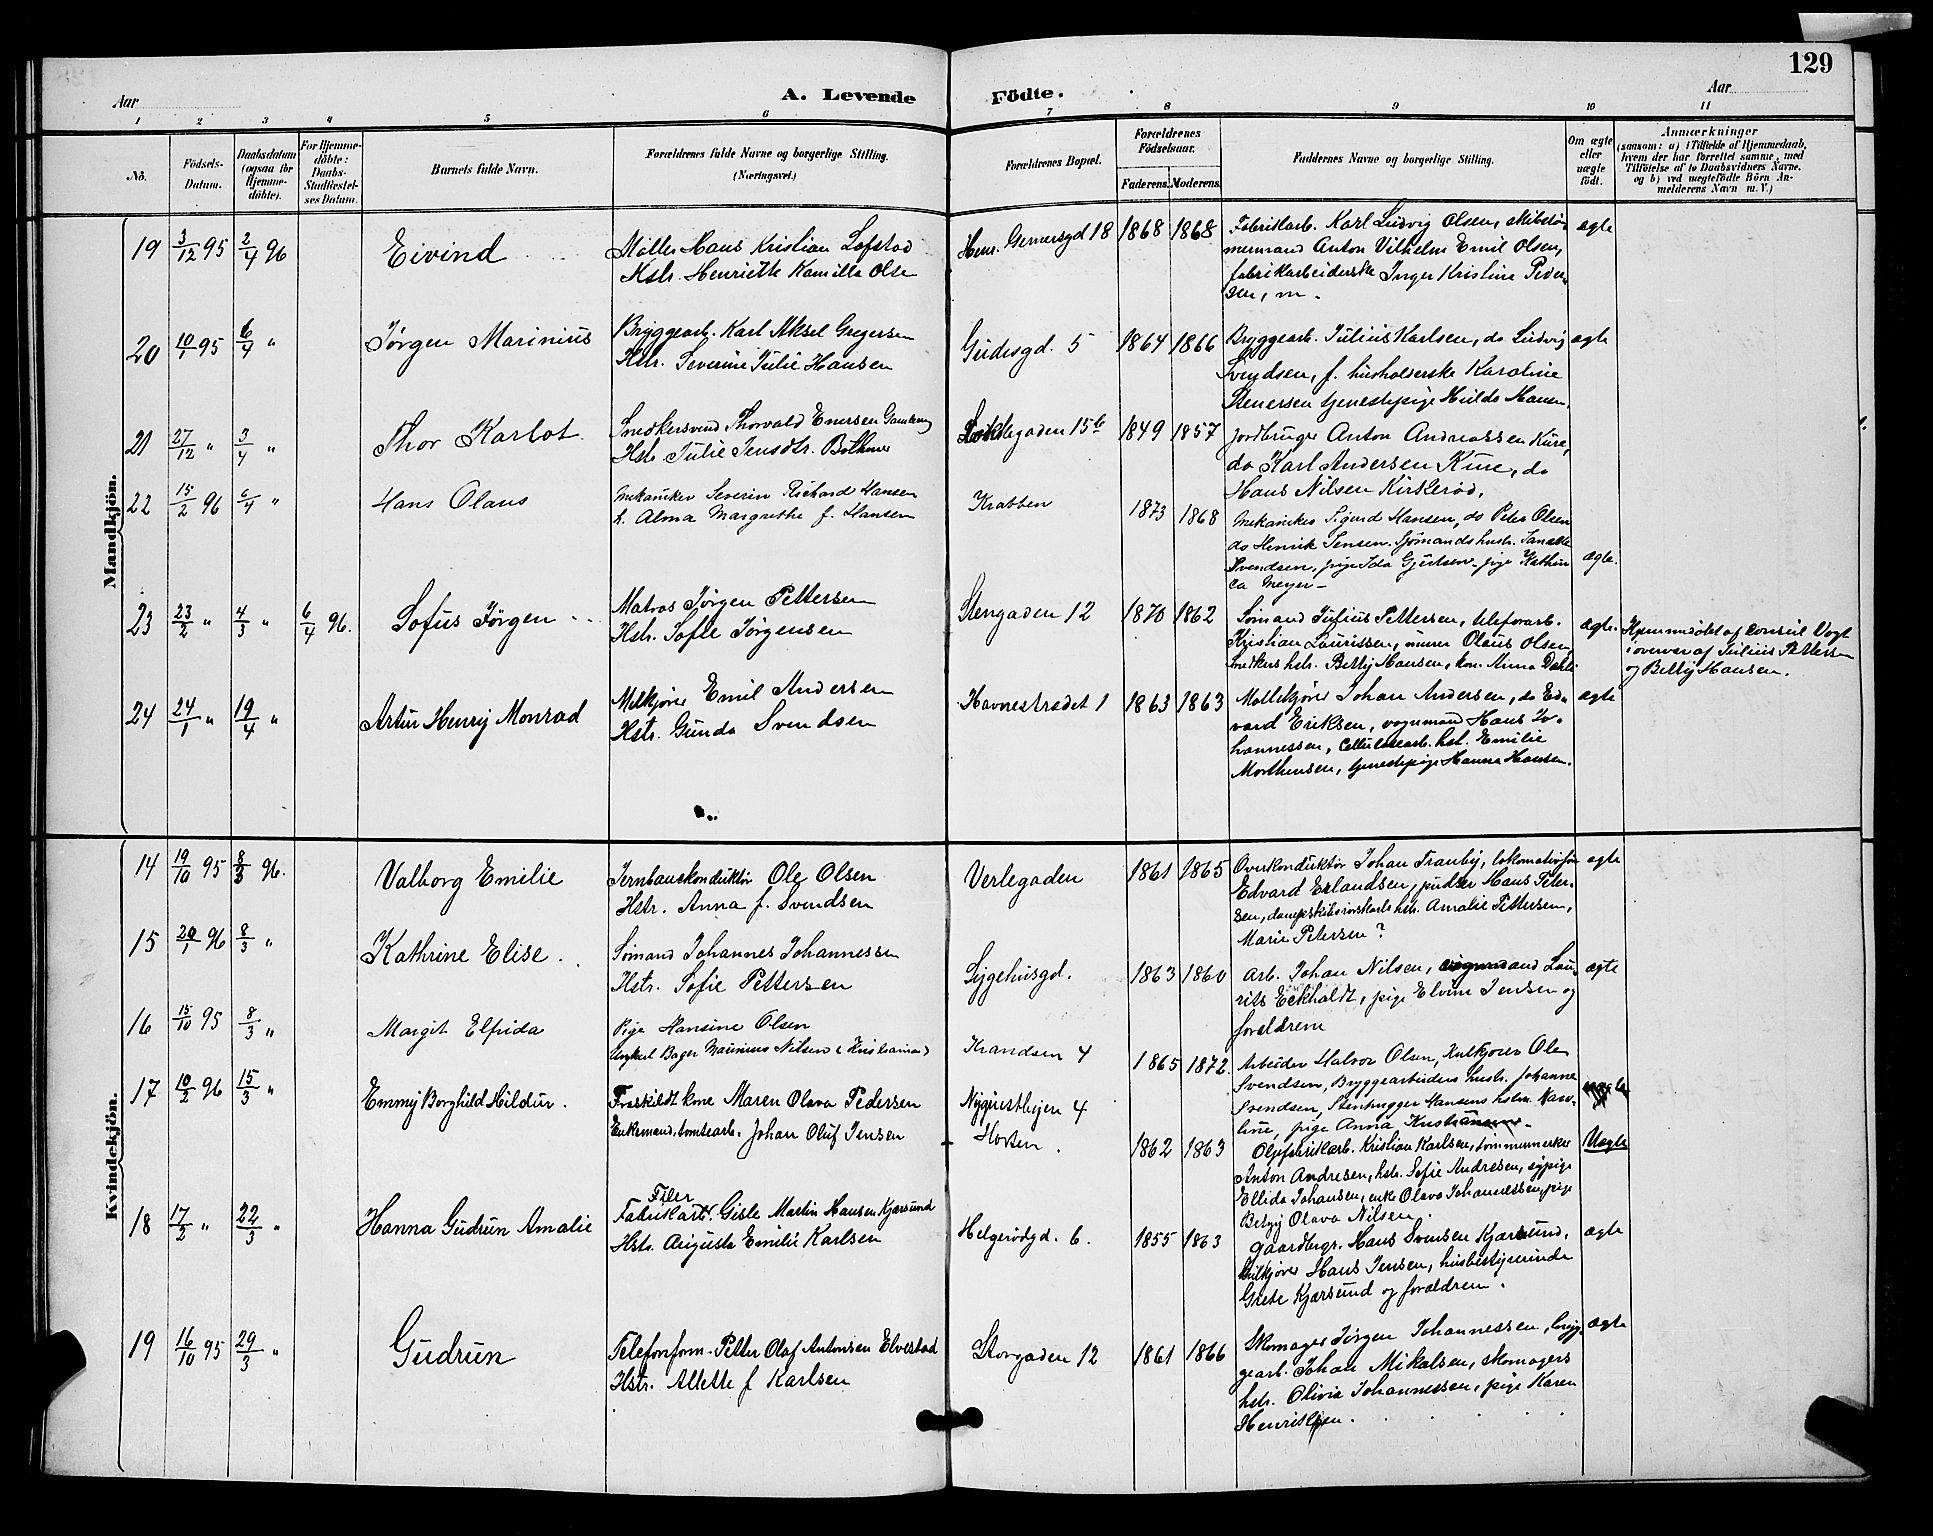 129
Aar
A. Levende Födte.
Aar
1 2 3 4 5 6 7 8 9 10 11
No.
Födsels-Datum.
Daabsdatum (ogsaa for Hjemme-döbte).
For Hjemme-döbte: Daabs-Stadfæstel-ses Datum.
Barnets fulde Navn.
Forældrenes fulde Navne og borgerlige Stilling. (Næringsvei.)
Forældrenes Bopæl.
Forældrenes Födselsaar.
Faderens. Moderens.
Faddernes Navne og borgerlige Stilling.
Om ægte eller uægte födt.
Anmærkninger
(saasom: a) i Tilfælde af Hjemmedaab,
hvem der har forrettet samme, med
Tilföielse af to Daabsvidners Navne.
og b) ved uægtefödte Börn An-
melderens Navn m. V.)
Mandkjön.
19 3/12 95 2/4 96 Eivind
Möller Hans Kristian Lofstad
Hstr. Henriette Kamilla Olsen
Henr. Gernersgd 18 1868 1868
Fabrikarb. Karl Ludvig Olsen, skibstöm-
mermand Anton Vilhelm Emil Olsen,
fabrikarbeiderske Inger Kristine Peder-
sen, m.
ægte
20 10/1 95 6/4 " Jörgen Marinius
Bryggearb. Karl Aksel Gregersen
Hstr. Severine Julie Hansen
Gudesgd. 5 1864 1866
Bryggearb. Julius Karlsen, do Ludvig
Svendsen, f. husholderske Karoline
Stenersen tjenestepige Hulda Hansen,
ægte
21 27/12 " 3/4 " Thor Karlot
Snedkersvend Thorvald Enersen
Hstr. Julie Jensdtr.
15b 1849 1857
Jordbruger Anton Andreassen Kure,
do Karl Andersen Kure, do
Hans Nilsen Kirkeröd.
22 15/2 96 6/4 " Hans Olaus
Mekaniker Severin Richard Hansen
h. Alma Margrethe f. Hansen
Krabben 1873 1868
Mekaniker Sigurd Hansen, do Peter Olsen
do Henrik Jensen. Sjömands hustr.
Svendsen, pige Ida Gjertsen, pige Kathin
ca Meyer
ægte.
23 23/2 " 4/3 " 6/4 96. Sofus Jörgen
Matros Jörgen Pettersen
Hstr. Sofie Jörgensen
Stengaden 12 1870 1862
Sömand Julius Pettersen, telefonarb.
Kristian Lauritssen, murer Olaus Olsen,
snedkers hstr. Betty Hansen, kone Anna
ægte.
Hjemmedöbt af Consul Vogt
i overvær af Julius Pettersen
og Betty Hansen.
24 24/1 " 19/4 " Artur Henry Monrad
Melkjörer Emil Andersen
Hstr. Gunda Svendsen
Havnestrædet 1 1863 1863
Möllekjörer Johan Andersen, do Ed-
vard Eriksen, vognmand Hans Jo-
hannessen, Cellulosearb. hst. Emilie
Morthensen, tjenestepige Hanna Hansen.
ægte
Kvindekjön.
14 19/10 95 8/3 96. Valborg Emilie
Jernbanekonduktör Ole Olsen
Hstr. Anna f. Svendsen
Verlegaden 1861 1865
Overkonduktör Johan Tranby, lokomotivför
Edvard Erlandsen, pudser Hans Peter-
sen, hstr. Amalie Pettersen,
Marie Petersen?
ægte
15 20/1 96 8/3 " Kathrine Elise.
Sömand Johannes Johannessen
Hstr. Sofie Pettersen
Sygehusgd. 1863 1860
Arb. Johan Nilsen, vognmand Lau-
rits Eckholdt, pige Elvine Jensen og
forældrene
ægte
16 15/10 95 8/3 " Margit Elfrida
Pige Hansine Olsen
Ungkarl Bager Maurinus Nilsen (Kristiania)
Krandsen 4 1865 1872.
Arbeider Halvor Olsen, Kulkjörer Ole
Svendsen, Bryggearbeiders hustr. Johanne
Svendsen, Stenhugger Hansens hstr. Karo-
line, pige Anna Kristiansen
17 10/2 96 15/3 " Emmy Borghild Hildur.
Fraskildt kone Maren Olava Pedersen
Enkemand, tomtearb. Johan Oluf Jensen
Nyquistbyen 4
Horten. 1862 1863
Oljefabrikarb. Kristian Karlsen, tömmermerker
Anton Andresen, hstr. Sofie Andresen, sypige
Ellida Johansen, enke Olava Johannessen, pige
Betzy Olava Nilsen.
Uægte
18 17/2 " 22/3 " Hanna Gudrun Amalie
Filer
Fabrikarb. Gisle Martin Hansen Kjærsund
Hstr. Augusta Emilie Karlsen
Helgerödgd. 6. 1855 1863
Gaardbrgr. Hans Svensen Kjærsund,
Hans Jensen, husbestyrerinde
Grete Kjærsund og forældrene.
ægte
19 16/10 95 29/3 " Gudrun
Telefonform. Petter Olaf Antonsen Elvestad
Hstr. Allette f Karlsen
Storgaden 12 1861 1866
Skomager Jörgen Johannessen, brygg-
gearb. Johan Mikalsen, skomagers
hstr. Olivia Johannessen, pige Karen
Henriksen.
ægte